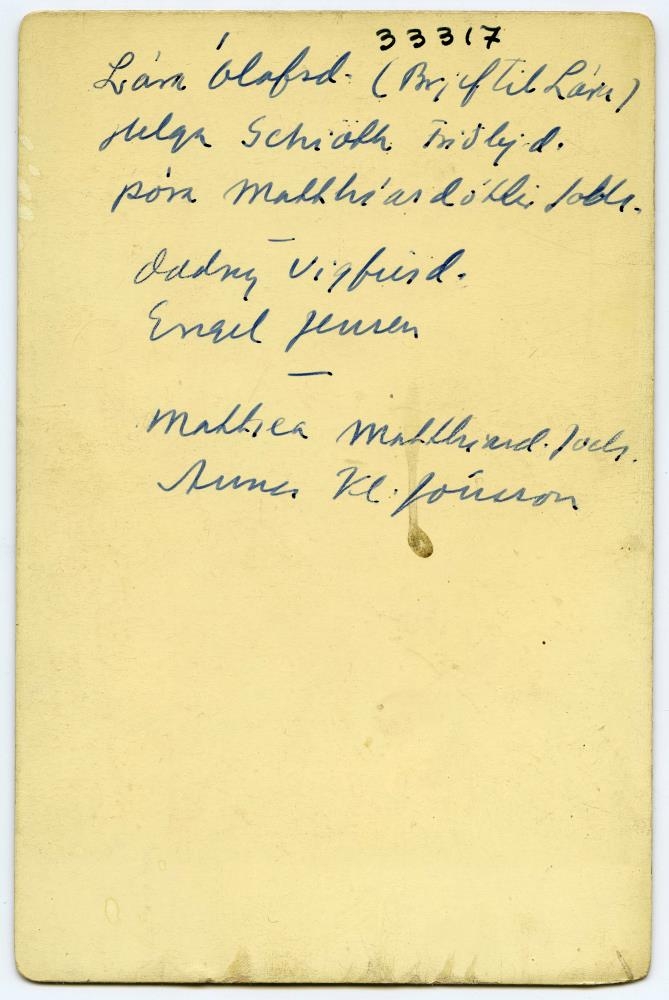 33317
Lára Ólafsd. (Brjef til Láru)
Helga Schiöth Friðbjd.
Þóra Matthíasdóttir Jochs.
—
Oddný Vigfúsd.
Engel Jensen
—
Matthea Matthíasd. Jochs.
Anna Kl. Jónsson